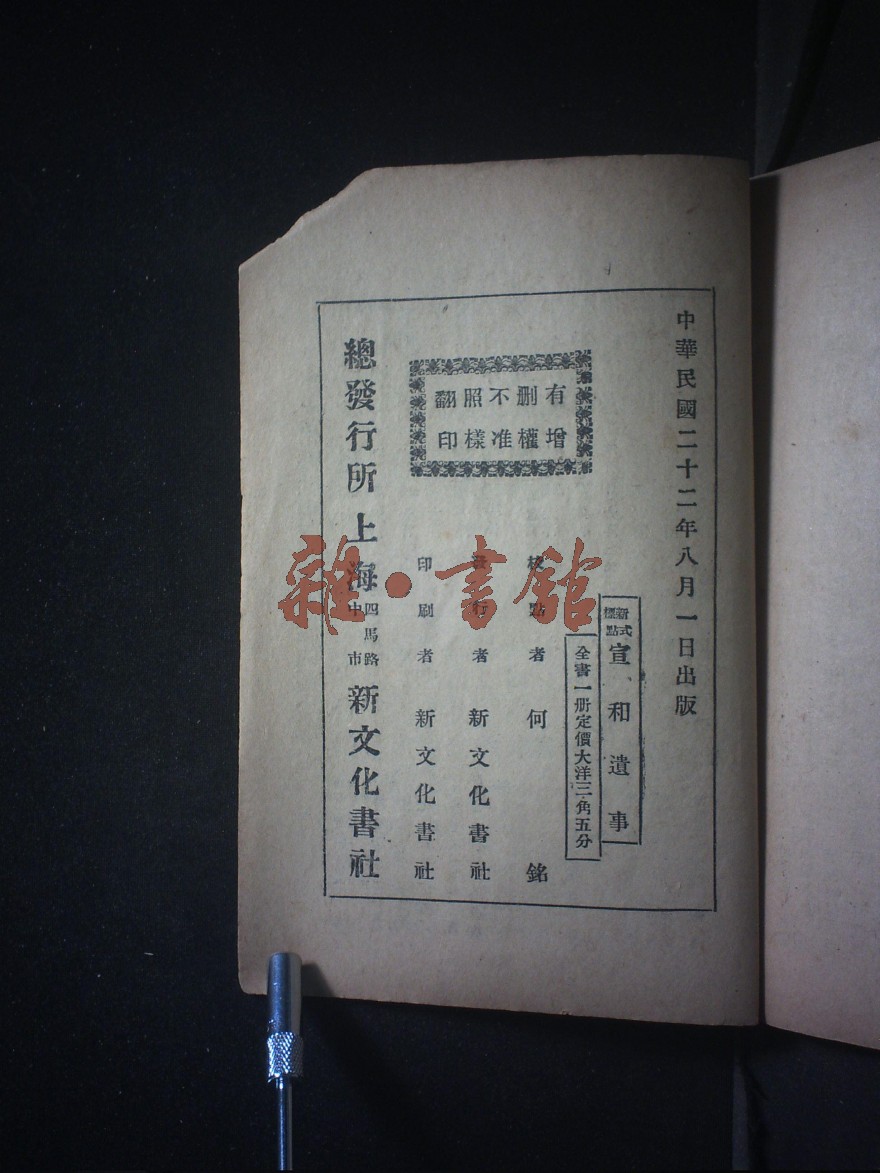 中華民國二十二年八月一日出版
新式
標點
宣和遺事
全書一册定價大洋三角五分
有增
删權
不准
照樣
翻印
校點者 何銘
發行者 新文化書社
印刷者 新文化書社
總發行所 上海 四馬路
中市 新文化書社
雜·書館